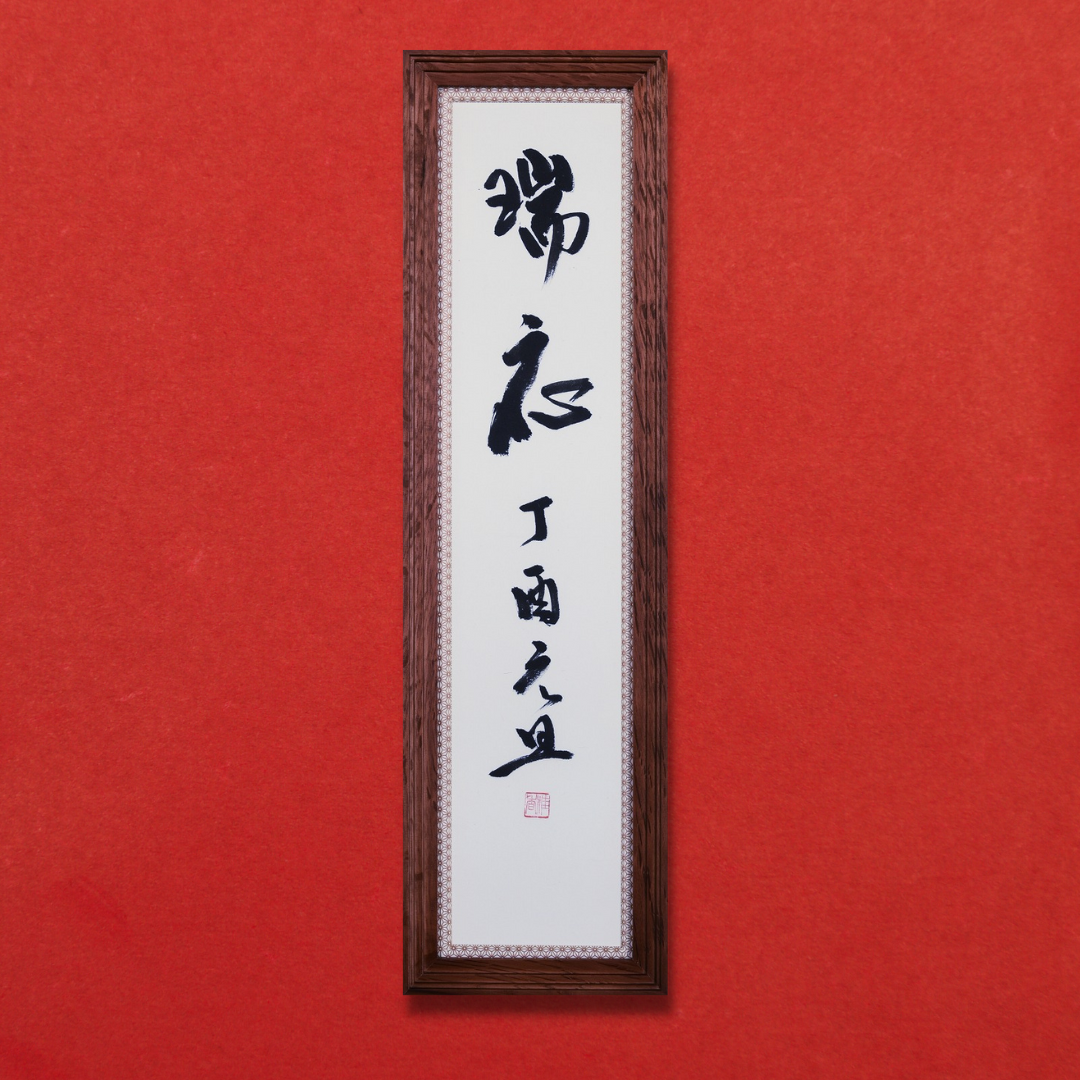 瑞応丁酉元旦